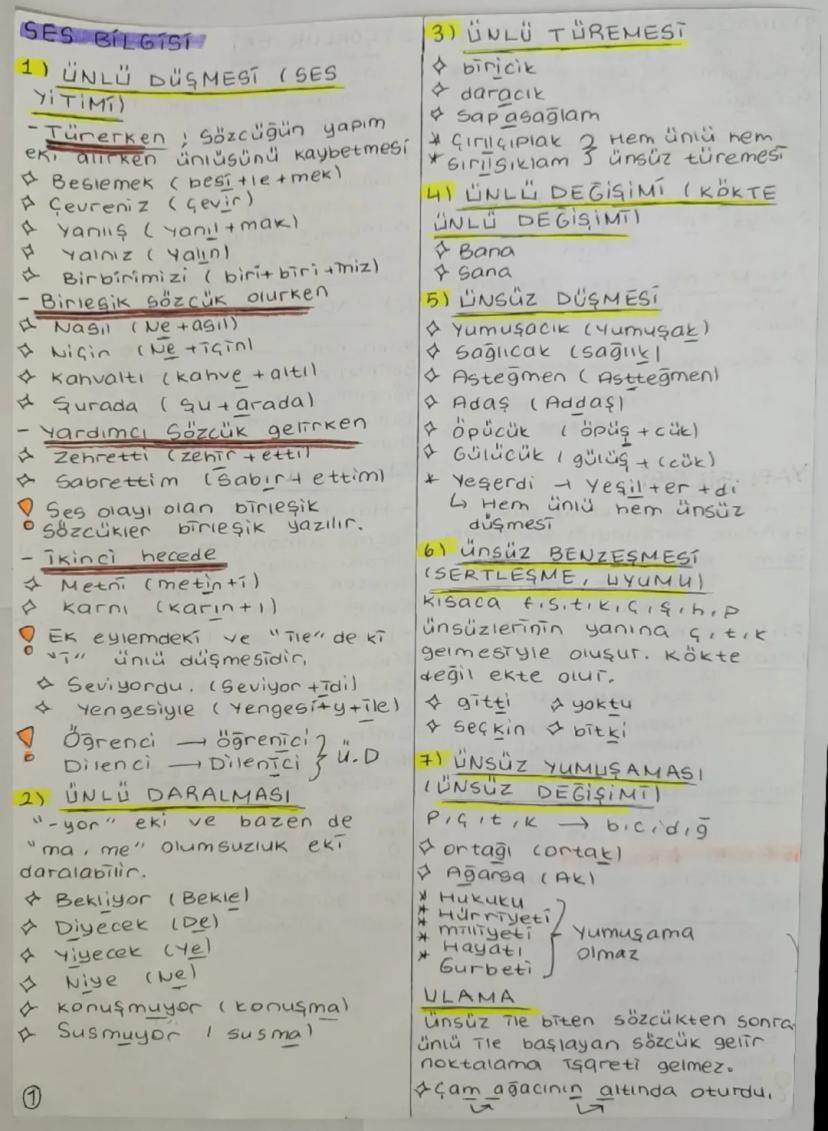 SES BİLGİSİ
1) ÜNLÜ DÜŞMESİ (SES
YİTİMİ)
- Türerken ; Sözcüğün yapım
eki alırken ünlüsünü kaybetmesi
✧ Beslemek (besi+le+mek)
✧ Çevreniz (Çevir)
✧ Yanlış (yanıl+mak)
✧ Yalnız (Yalın)
✧ Birbirimizi (biri+biri+imiz)
- Birleşik sözcük olurken
✧ Nasıl (Ne+asıl)
✧ Niçin (Ne+için)
✧ Kahvaltı (kahve + altı)
✧ Şurada (şu+arada)
- Yardımcı Sözcük gelirken
✧ Zehretti (zehir+etti)
✧ Sabrettim (Sabır+ ettim)
! Ses olayı olan birleşik
sözcükler birleşik yazılır.
- İkinci hecede
✧ Metni (metin+i)
✧ Karnı (Karın+ı)
! Ek eylemdeki ve "ile" de ki
"i" ünlü düşmesidir.
✧ Seviyordu. (Seviyor+idi)
✧ Yengesiyle (Yengesi+y+ile)
! Öğrenci → öğrenici } Ü.D
Dilenci → Dilenici
2) ÜNLÜ DARALMASI
"-yor" eki ve bazen de
"ma, me" olumsuzluk eki
daralabilir.
✧ Bekliyor (Bekle)
✧ Diyecek (De)
✧ Yiyecek (Ye)
✧ Niye (Ne)
✧ Konuşmuyor (konuşma)
✧ Susmuyor (susma)
1
3) ÜNLÜ TÜREMESİ
✧ biricik
✧ daracık
✧ Sapasağlam
* Çırılçıplak } Hem ünlü hem
* Sırılsıklam } ünsüz türemesi
4) ÜNLÜ DEĞİŞİMİ (KÖKTE
ÜNLÜ DEĞİŞİMİ)
✧ Bana
✧ Sana
5) ÜNSÜZ DÜŞMESİ
✧ Yumuşacık (Yumuşak)
✧ Sağlıcak (sağlık)
✧ Asteğmen (Astteğmen)
✧ Adaş (Addaş)
✧ Öpücük (öpüş+cük)
✧ Gülücük (gülüş+cük)
* Yeşerdi → Yeşil+er+di
↳ Hem ünlü hem ünsüz
düşmesi
6) ÜNSÜZ BENZEŞMESİ
(SERTLEŞME, UYUMU)
Kısaca f,s,t,k,ç,ş,h,p
ünsüzlerinin yanına ç,t,k
gelmesiyle oluşur. Kökte
değil ekte olur.
✧ gitti ✧ yoktu
✧ seçkin ✧ bitki
7) ÜNSÜZ YUMUŞAMASI
(ÜNSÜZ DEĞİŞİMİ)
p,ç,t,k → b,c,d,ğ
✧ ortağı (ortak)
✧ Ağarsa (Ak)
* Hukuku
* Hürriyeti
* milliyeti } Yumuşama
* Hayatı olmaz
Gurbeti
ULAMA
Ünsüz ile biten sözcükten sonra
ünlü ile başlayan sözcük gelir
noktalama işareti gelmez.
✧ Çam ağacının altında oturdu.